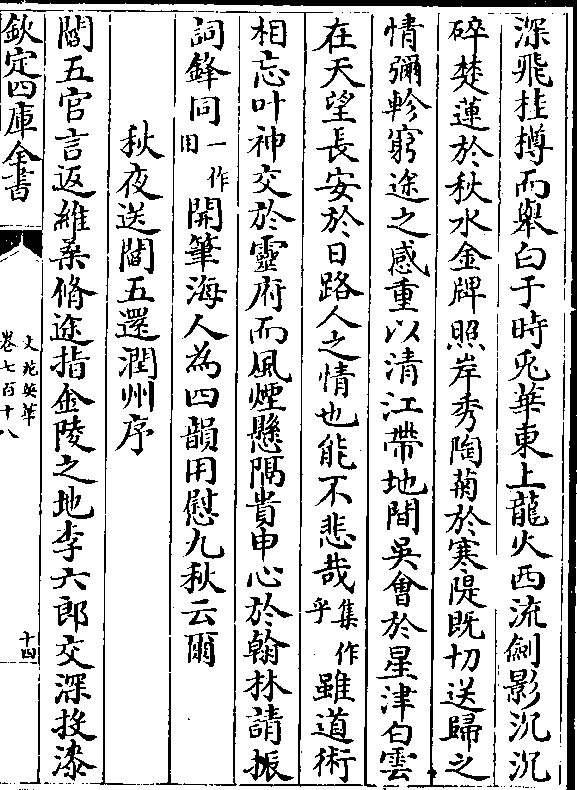 深飛桂樽而舉白于時兎華東上龍火西流劍影沉沉
碎楚蓮於秋水金牌照岸秀陶菊於寒隄既切送歸之
情彌軫窮途之感重以清江帶地間吳會於星津白雲
在天望長安於日路人之情也能不悲哉集作乎雖道術
相忘叶神交於靈府而風煙懸隔貴申心於翰林請振
詞鋒同一作囘開筆海人為四韻用慰九秋云爾
秋夜送閻五還潤州序
閻五官言返維桑脩途指金陵之地李六郎交深投漆
欽定四庫全書
文苑英華
卷七百十八
十四